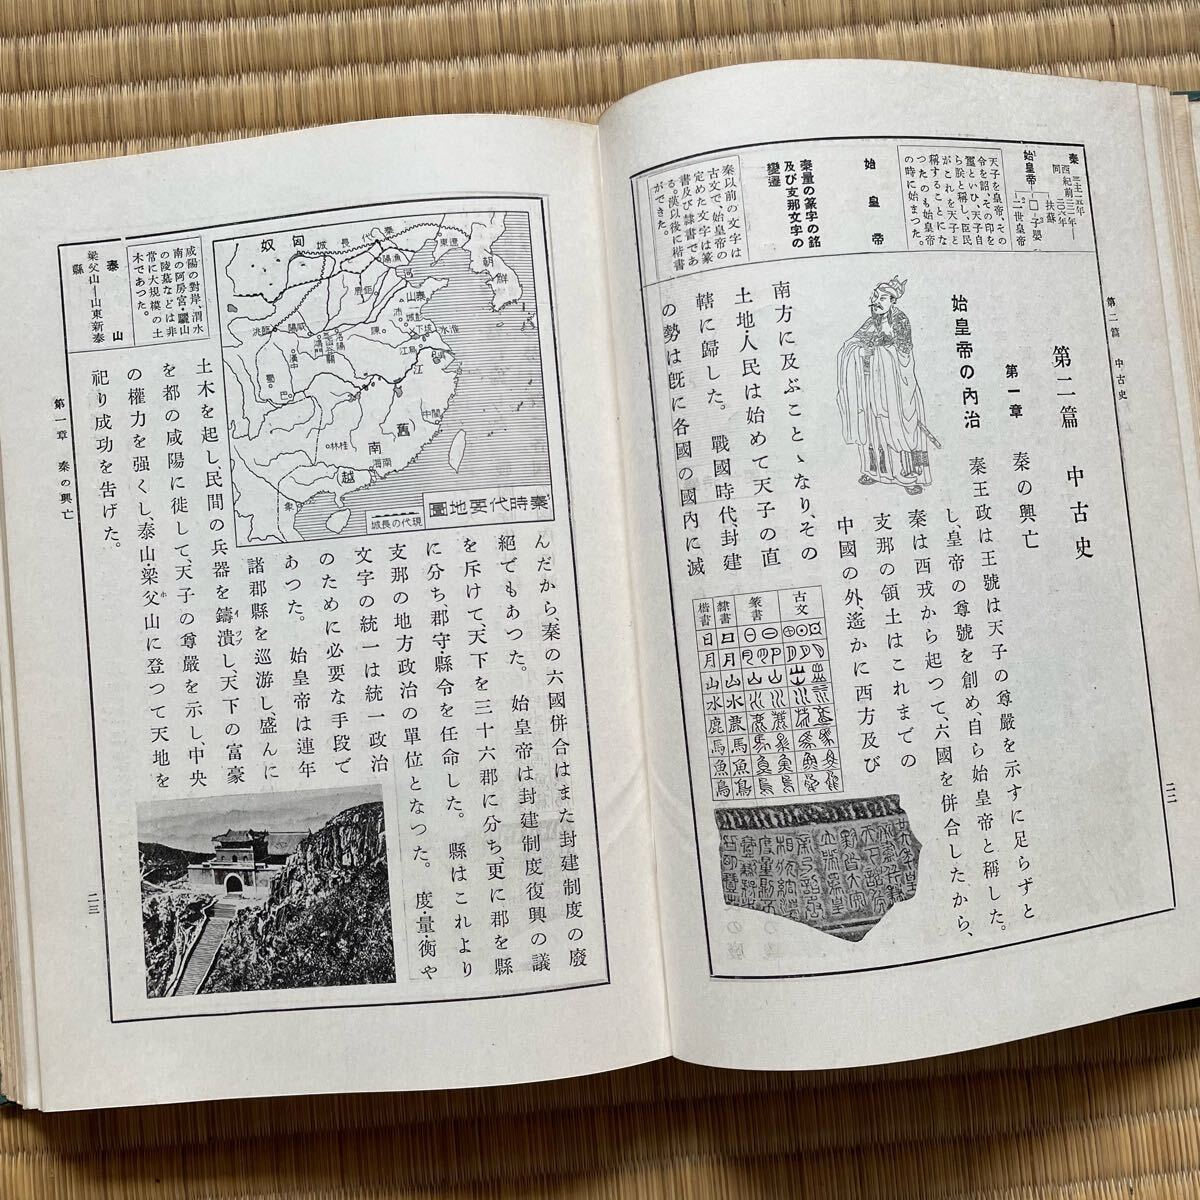 第二篇 中古史
第二篇 中古史
第一章 秦の興亡
始皇帝の內治
秦王政は王號は天子の尊嚴を示すに足らずと
し、皇帝の尊號を創め、自ら始皇帝と稱した。
秦は西戎から起つて、六國を併合したから、
支那の領土はこれまでの
中國の外、遙かに西方及び
南方に及ぶことゝなり、その
土地・人民は始めて天子の直
轄に歸した。 戰國時代、封建
の勢は既に各國の國內に滅
秦
西紀前
同
始皇帝
扶蘇
子嬰
二世皇帝
天子を皇帝、その
令を詔、その印を
璽といひ、天子自
ら朕と稱し、臣民
がこれを天子と
稱することにな
つたのも始皇帝
の時に始まつた。
始皇帝
秦量の篆字の銘
及び支那文字の
變遷
秦以前の文字は
古文で、始皇帝の
定めた文字は篆
書及び隸書であ
る。漢以後に楷書
ができた。
古文
篆書
隸書
日月山水鹿馬魚鳥
楷書
日月山水鹿馬魚鳥
二二
んだから、秦の六國併合はまた封建制度の廢
絕でもあつた。 始皇帝は封建制度復興の議
を斥けて、天下を三十六郡に分ち、更に郡を縣
に分ち、郡守・縣令を任命した。 縣はこれより
支那の地方政治の單位となつた。 度・量・衡や
文字の統一は統一政治
のために必要な手段で
あつた。 始皇帝は連年
諸郡縣を巡游し盛んに
土木を起し、民間の兵器を鑄潰し天下の富豪
を都の咸陽に徙して、天子の尊嚴を示し、中央
の權力を强くし、泰山・梁父山に登つて天地を
祀り成功を告げた。
秦時代要地圖
現代の長城
秦代長城
匈奴
朝鮮
遼東
漁陽
河
泰山
沛
彭城
垓下
淮水
烏江
江
陳
洛陽
函谷關
鴻門
咸陽
臨洮
漢中
蜀
巴
閩中
桂林
南海
南越
象
咸陽の對岸、渭水
南の阿房宮・驪山
の陵墓などは非
常に大規模の土
木であつた。
泰山
梁父山—山東新泰
縣
第一章 秦の興亡
二三